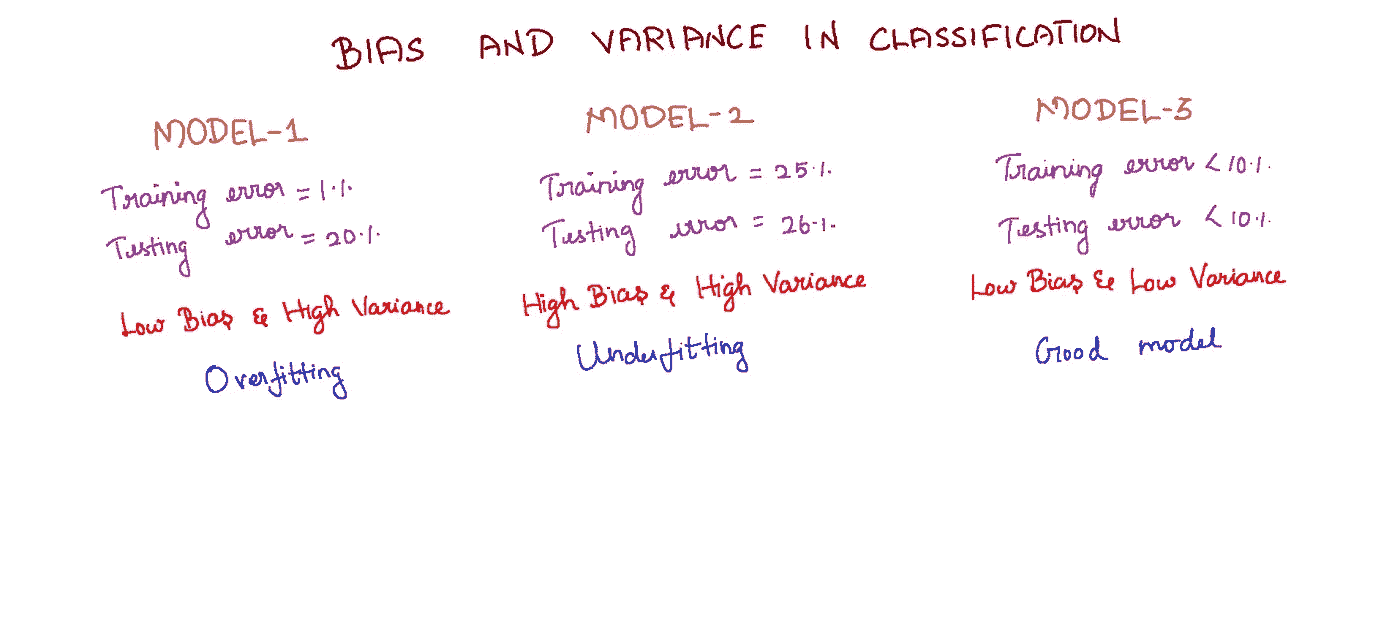 BIAS AND VARIANCE IN CLASSIFICATION
MODEL-1
Training error = 1%
Testing error = 20%
Low Bias & High Variance
Overfitting
MODEL-2
Training error = 25%
Testing error = 26%
High Bias & High Variance
Underfitting
MODEL-3
Training error < 10%
Testing error < 10%
Low Bias & Low Variance
Good model